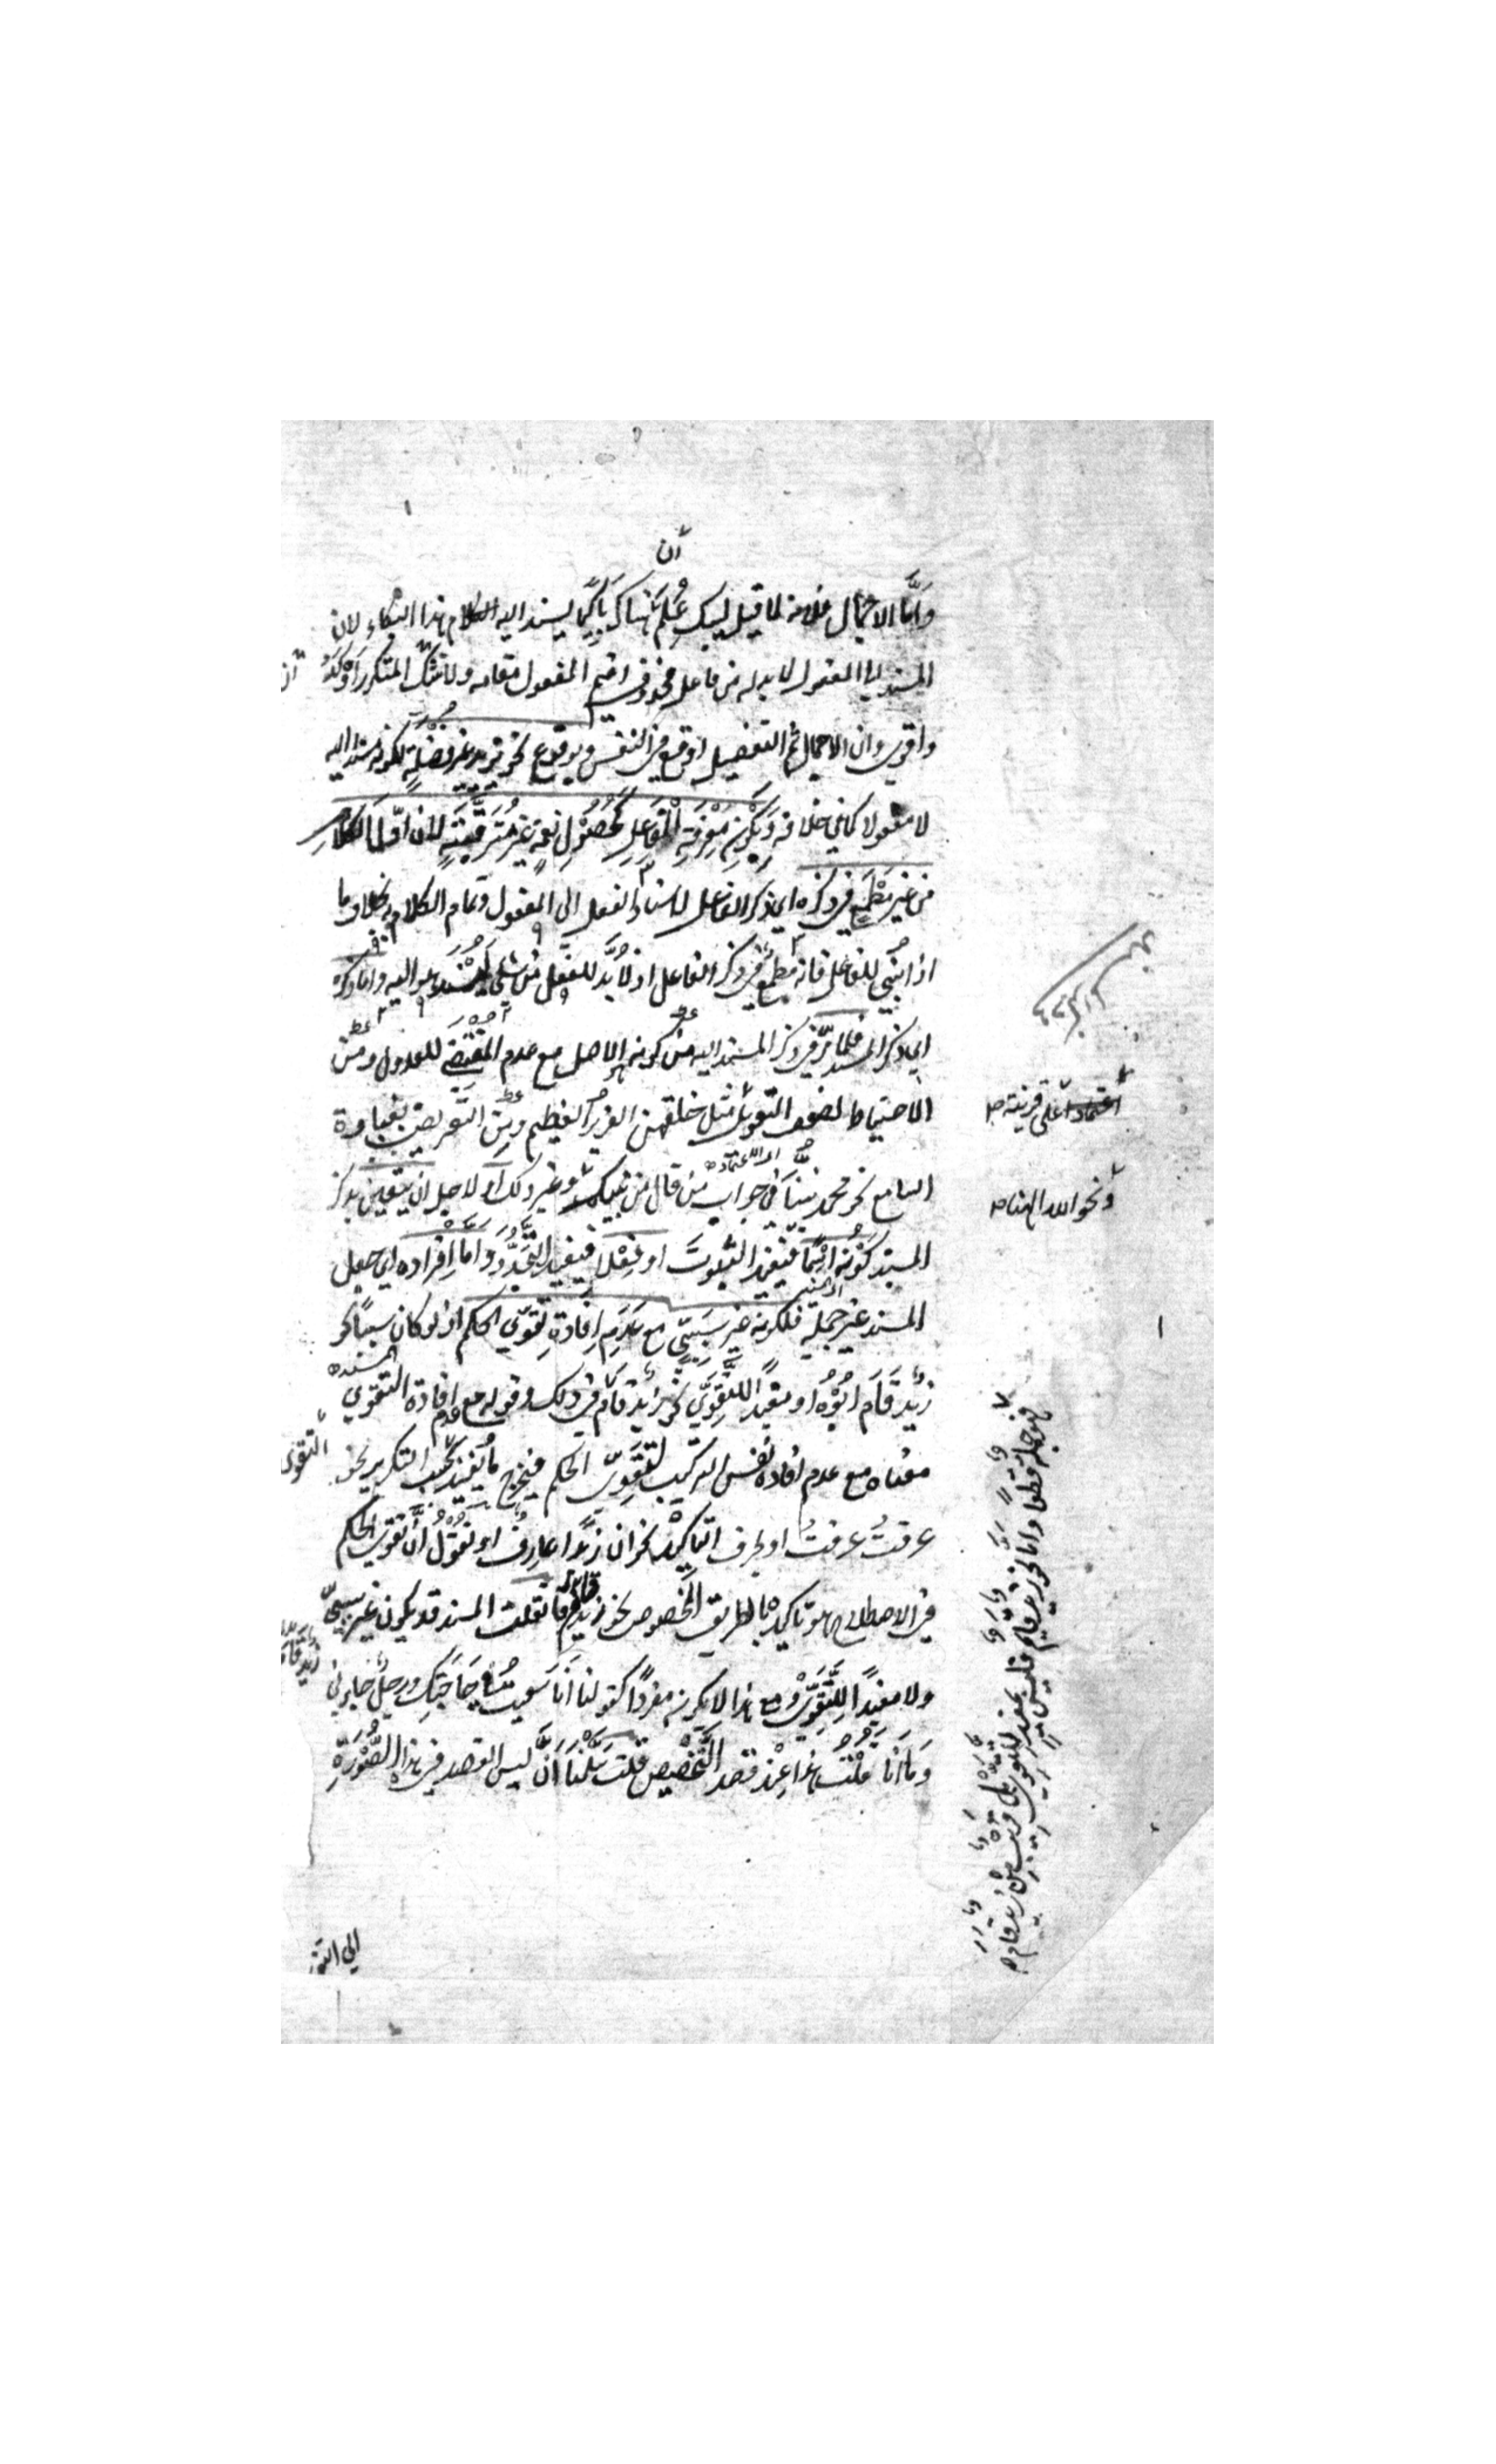 أن
وأما الإجمال فلأنه لما قيل ليبك علم أن هناك باكيا يسند اليه هذا البكاء لان
المسند الى المفعول لا بد له من فاعل محذوف اقيم المفعول مقامه ولا شك أن المتكرر أوكد
واقوى وان الاجمال ثم التفصيل اوقع في النفس وبوقوع نحو يزيد غير فضلة لكونه مسندا اليه
لا مفعولا كما في خلافه وبكون معرفة الفاعل كحصول نعمة غير مترقبة لان اول الكلام
من غير مطمع في ذكره اي ذكر الفاعل لاسناد الفعل الى المفعول وتمام الكلام به بخلاف ما
اذا بني للفاعل فانه مطمع في ذكر الفاعل اذ لا بد للفعل من شيء يسند هو اليه واما ذكره
اي ذكر المسند فلما مر في ذكر المسند اليه من كونه الاصل مع عدم المقتضى للعدول ومن
الاحتياط لضعف التعويل مثل خلقهن العزيز العليم ومن التعريض بغباوة
السامع نحو محمد نبينا في جواب من قال من نبيكم وغير ذلك او لاجل ان يتعين بذكر
المسند كونه اسما فيفيد الثبوت او فعلا فيفيد التجدد واما افراده اي جعل
المسند غير جملة فلكونه غير سببي مع عدم افادة تقوي الحكم اذ لو كان سببيا نحو
زيد قام ابوه او مفيدا للتقوي نحو زيد قام في ذلك وقوله مع عدم افادة التقوي
معناه مع عدم افادة نفس التركيب لتقوي الحكم فيخرج ما يفيد بحسب التكرير نحو
عرفت عرفت او بحرف التاكيد نحو ان زيدا عارف او نقول أن تقوي الحكم
في الاصطلاح هو تاكيده بالطريق المخصوص نحو زيد قام فان قلت المسند قد يكون غير سببي
ولا مفيدا للتقوي ومع هذا لا يكون مفردا كقولنا أنا سعيت في حاجتك ورجل جاءني
وما أنا قلت هذا عند قصد التخصيص قلت سلمنا أن ليس القصد في هذه الصورة
الى التقو
اعتمادا على قرينة
ونحو الله الهنا
فهو جملة قطعا واما نحو زيد قائم فليس
بمفيد للتقوي بل قريب من زيد قام
التقوى